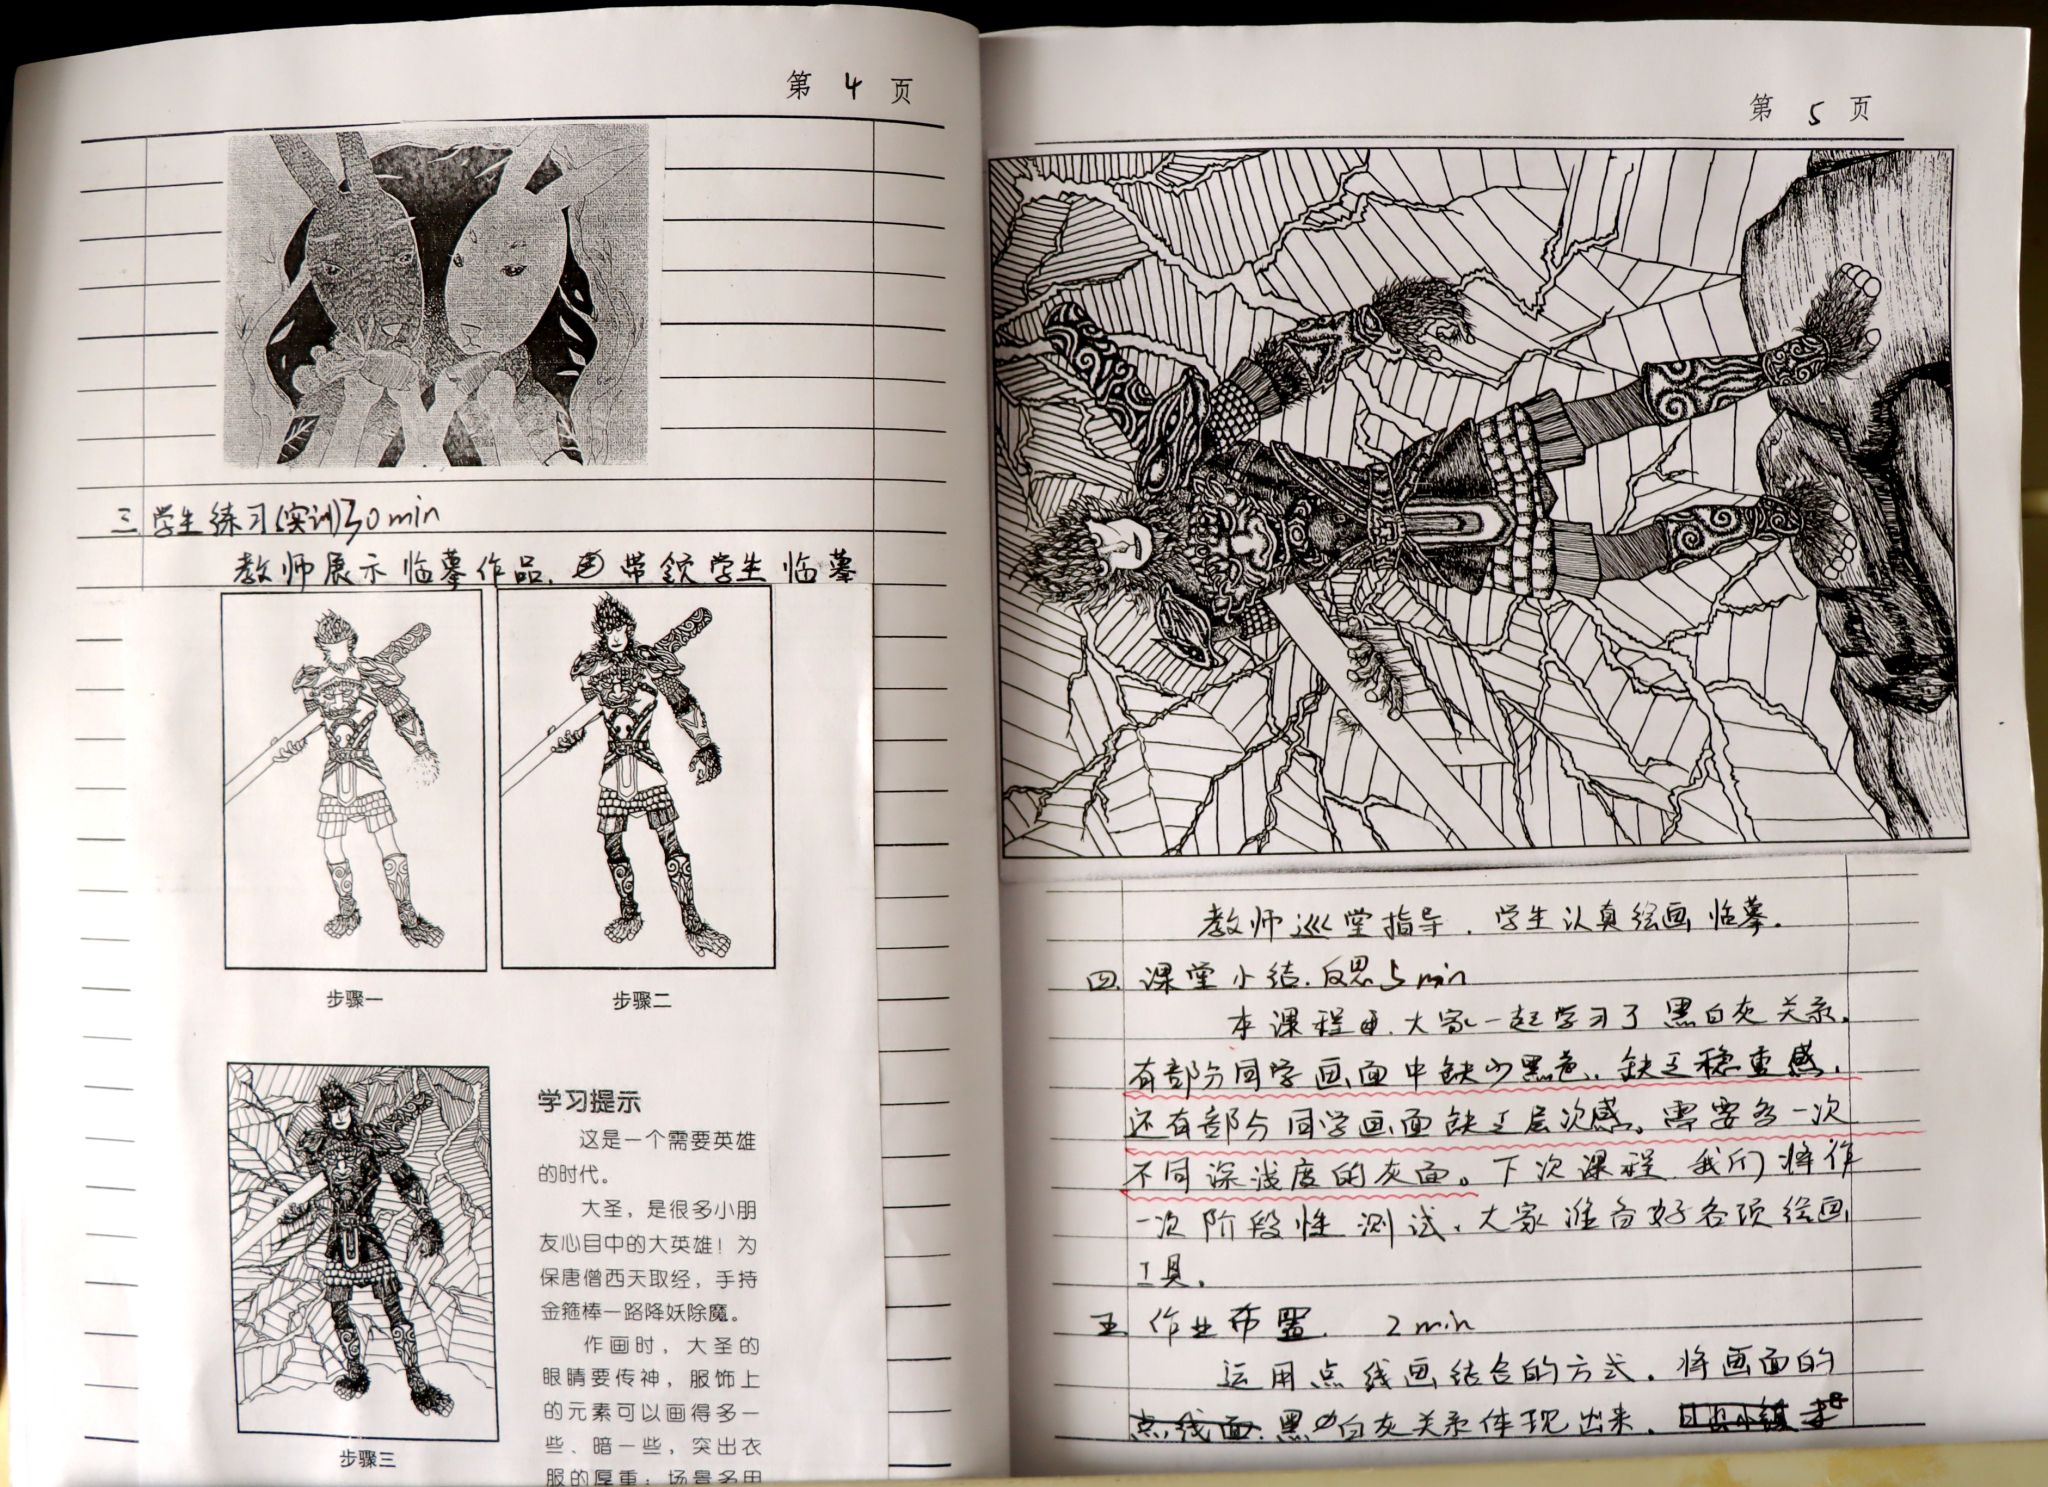 第 4 页
三.学生练习(实训)30min
教师展示临摹作品.带领学生临摹
步骤一
步骤二
步骤三
学习提示
这是一个需要英雄
的时代。
大圣，是很多小朋
友心目中的大英雄！为
保唐僧西天取经，手持
金箍棒一路降妖除魔。
作画时，大圣的
眼睛要传神，服饰上
的元素可以画得多一
些、暗一些，突出衣
服的厚重；场景多用
第 5 页
教师巡堂指导.学生认真绘画临摹.
四.课堂小结.反思5min
本课程.大家一起学习了黑白灰关系.
有部分同学画面中缺少黑色.缺乏稳重感.
还有部分同学画面缺乏层次感。需要多一次
不同深浅度的灰面。下次课程.我们将作
一次阶段性测试.大家准备好各项绘画
工具.
五.作业布置. 2min
运用点线画结合的方式.将画面的
黑白灰关系体现出来.